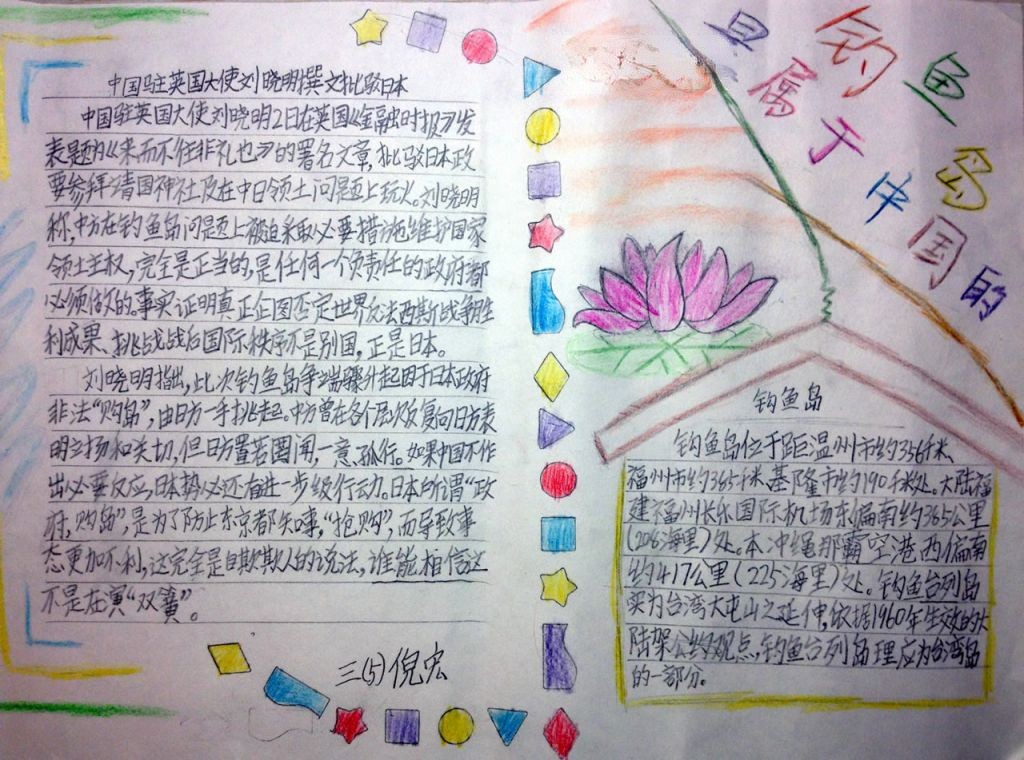 中国驻英国大使刘晓明撰文批驳日本
中国驻英国大使刘晓明2日在英国《金融时报》发
表题为《来而不往非礼也》的署名文章,批驳日本政
要参拜靖国神社及在中日领土问题上玩火。刘晓明
称,中方在钓鱼岛问题上被迫采取必要措施维护国家
领土主权,完全是正当的,是任何一个负责任的政府都
必须做的。事实证明真正企图否定世界反法西斯战争胜
利成果、挑战战后国际秩序不是别国,正是日本。
刘晓明指出,此次钓鱼岛争端骤升起因于日本政府
非法“购岛”,由日方一手挑起。中方曾在各个层次反复向日方表
明立场和关切,但日方置若罔闻,一意孤行。如果中国不作
出必要反应,日本势必还有进一步升级行动。日本所谓“政
府,购岛”是为了防止东京都失嗪,“抢购”,而导致事
态更加不利,这完全是自欺欺人的说法,谁能相信这
不是在演“双簧”。
三(5)倪宏
钓鱼岛
是属于中国的
钓鱼岛
钓鱼岛位于距温州市约356千米、
福州市约385千米、基隆市约190千米处。大陆福
建福州长乐国际机场东偏南约365公里
(206海里)处。本冲绳那霸空港西偏南
约417公里(225海里)处。钓鱼台列岛
实为台湾大屯山之延伸,依据1960年生效的大
陆架公约观点,钓鱼台列岛理应为台湾岛
的一部分。